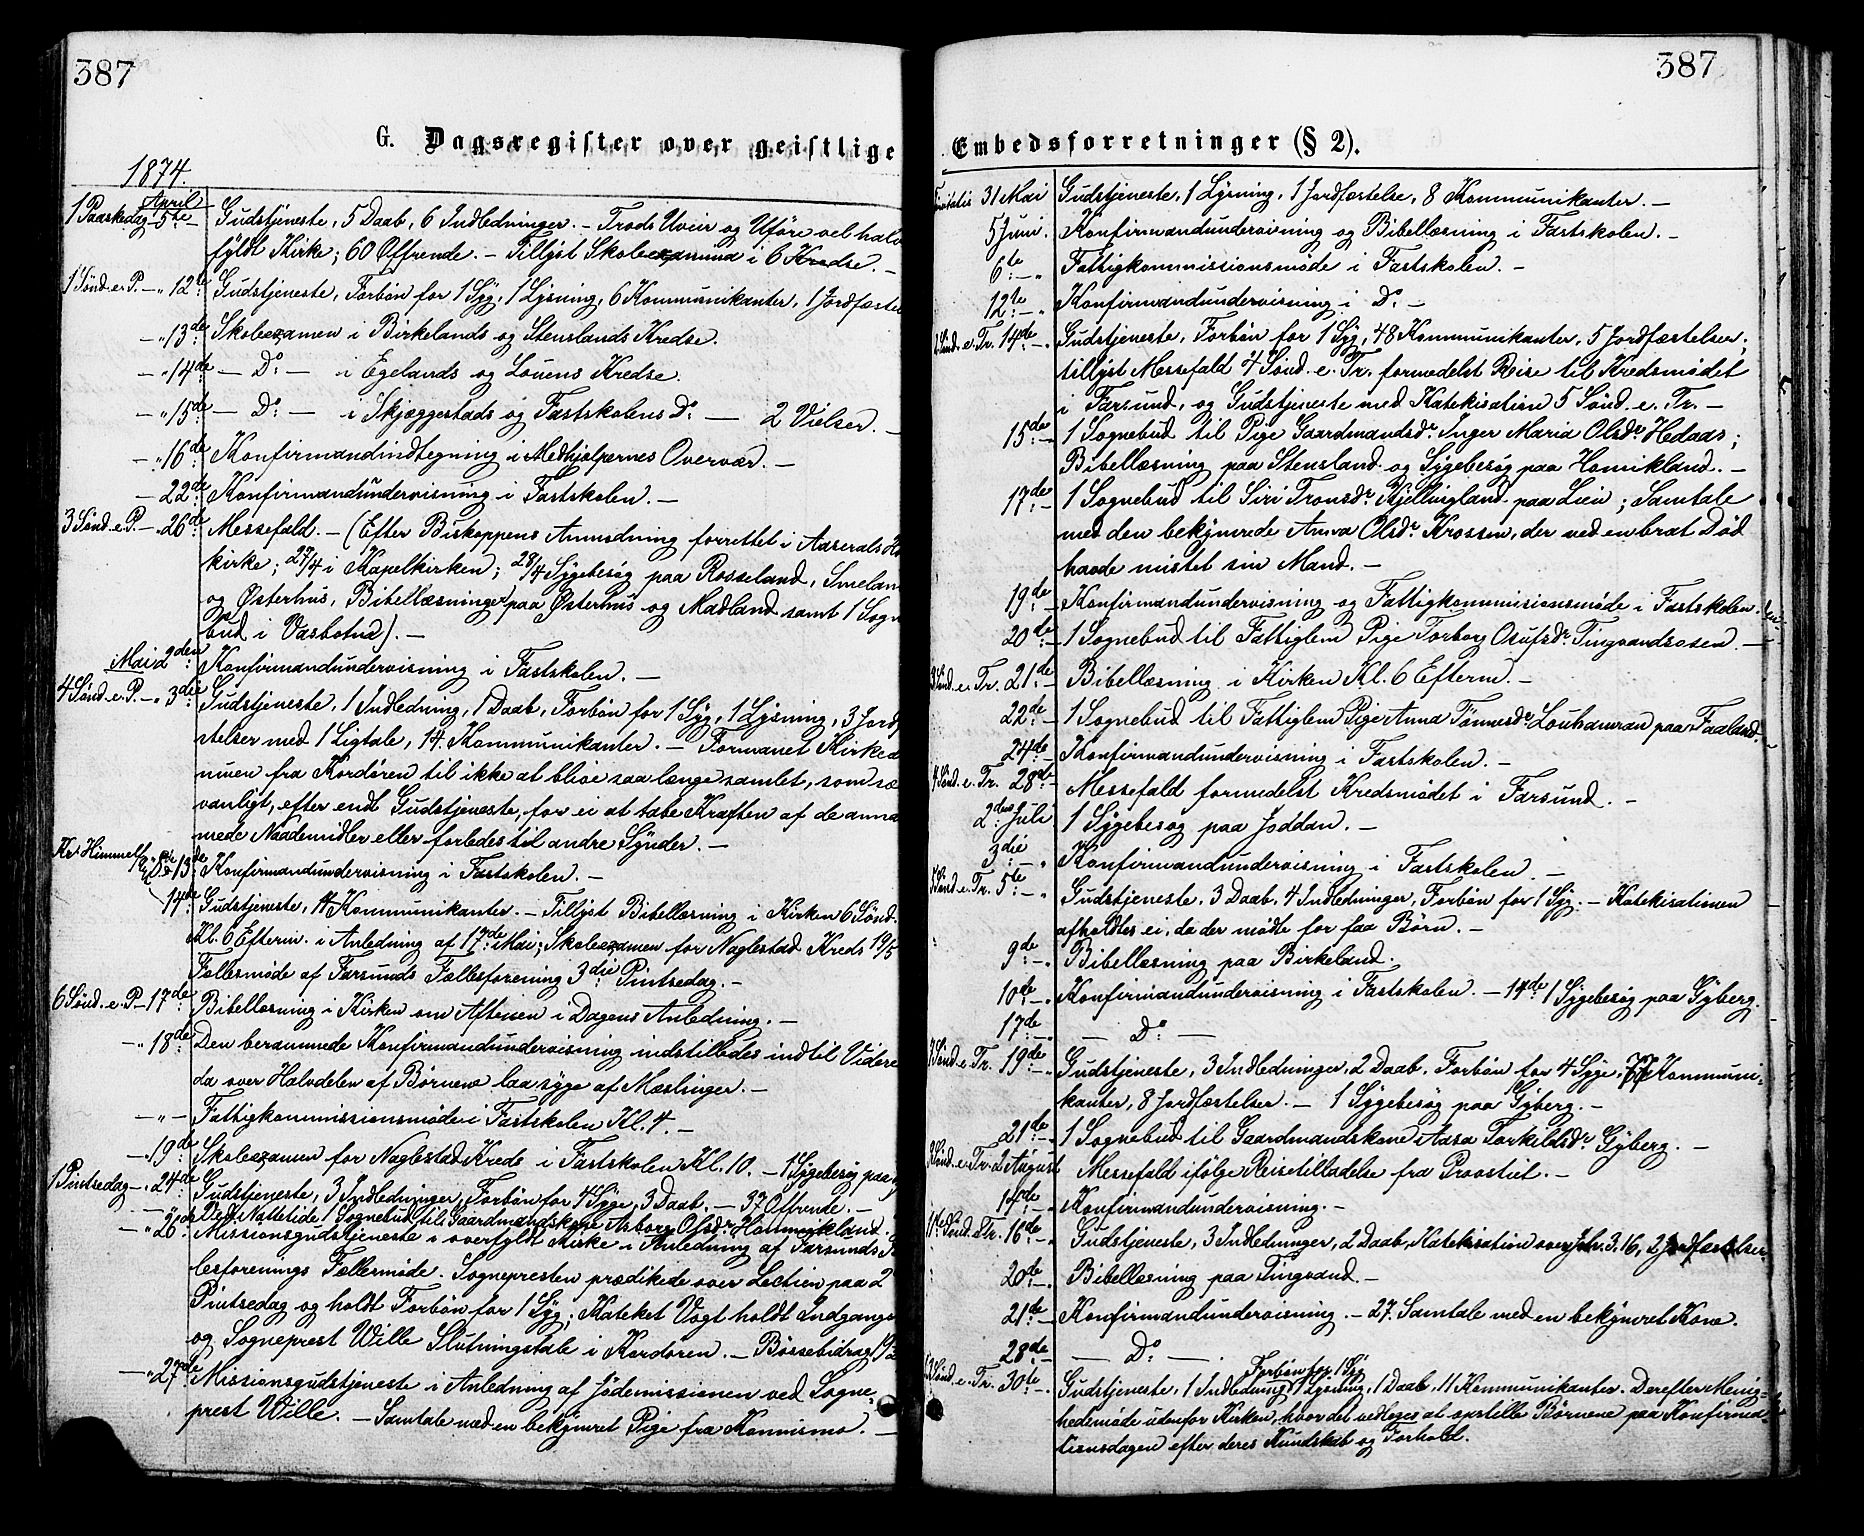 387
G. Dagsregister over geistlige
1874.
April
1 Paaskedag 5te – Gudstjeneste, 5 Daab, 6 Indledninger. – Trods Uveir og Uføre vel halv
fyldt Kirke; 60 Offrende. – Tillyst Skoleexamina i 6 Kredse. –
1 Sønd. e. P. – „ 12te Gudstjeneste, Forbøn for 1 Syg, 1 Lysning, 6 Kommunikanter, 1 Jordfæstel
– „ 13de Skoleexamen i Birkelands og Stenslands Kredse.
– „ 14de – Do: – i Egelands og Louens Kredse.
– „ 15de – Do: – i Skjæggestads og Fastskolens Do: – 2 Vielser. –
– „ 16de Konfirmandindtegning i Medhjælpernes Overvær. –
– 22de Konfirmandundervisning i Fastskolen. –
3 Sønd. e. P. – „ 26de Messefald. – (Efter Biskoppens Anmodning forrettet i Aaserals Ho
kirke; 27/4 i Kapelkirken; 28/4 Sygebesøg paa Rosseland, Smelan
og Østerhus, Bibellæsninger paa Østerhus og Madland samt 1 Sogn
bud i Vasbotnd). –
Mai 2den Konfirmandundervisning i Fastskolen. –
4 Sønd. e. P. – „ 3die Gudstjeneste, 1 Indledning, 1 Daab, Forbøn for 1 Syg, 1 Lysning, 3 Jordf
stelser med 1 Ligtale, 14 Kommunikanter. – Formanet Kirkeal
muen fra Kordøren til ikke at blive saa længe samlet, som sæ
vanligt, efter endt Gudstjeneste, for ei at tabe Kraften af de anna
mede Naademidler eller forledes til andre Synder. –
Kr. Himmelf 13de Konfirmandundervisning i Fastskolen. –
14de Gudstjeneste, 11 Kommunikanter. – Tillyst Bibellæsning i Kirken 6 Sønd.
Kl. 6 Efterm. i Anledning af 17de Mai; Skoleexamen for Naglestad Kreds 19/5
Fællesmøde af Farsunds Fællesforening 3die Pintsedag. –
6 Sønd. e. P. – 17de Bibellæsning i Kirken om Aftenen i Dagens Anledning. –
– „ 18de Den berammede Konfirmandundervisning indstilledes indtil Videre
da over Halvdelen af Børnene laa syge af Mæslinger. –
– „ – Fattigkommissionsmøde i Fastskolen Kl. 4. –
– 19de Skoleexamen for Naglestad Kreds i Fastskolen Kl. 10. – 1 Sygebesøg paa
1 Pintsedag – „ 24de Gudstjeneste, 3 Indledninger, Forbøn for 4 Syge, 3 Daab. – 37 Offrende. –
Ved Nattetide 1 Sognebud til Gaardmandskone Asborg Olsdr Hommekland.
– „ 26de Missionsgudstjeneste i overfyldt Kirke i Anledning af Farsunds F
lesforenings Fællesmøde. Sognepresten prædikede over Lectien paa 2
Pintsedag og holdt Forbøn for 1 Syg; Kateket Vogt holdt Indgangs
og Sogneprest Wille Slutningstale i Kordøren. – Bøssebidrag
– „ 27de Missionsgudstjeneste i Anledning af Jødemissionen ved Sogne-
prest Wille. – Samtale med en bekymret Pige fra Konnismo. –
387
Embedsforretninger (§ 2).
Trinitatis 31 Mai Gudstjeneste, 1 Lysning, 1 Jordfæstelse, 8 Kommunikanter. –
5 Juni. Konfirmandundervisning og Bibellæsning i Fastskolen. –
6te – „ Fattigkommissionsmøde i Fastskolen. –
12te – „ Konfirmandundervisning i Do: –
2 Sønd. e. Tr. 14de – „ Gudstjeneste, Forbøn for 1 Syg, 48 Kommunikanter, 5 Jordfæstelser;
tillyst Messefald 4 Sønd. e. Tr. formedelst Reise til Kredsmødet
i Farsund, og Gudstjeneste med Katekisation 5 Sønd. e. Tr. –
15de – „ 1 Sognebud til Pige Gaardmandsdr. Inger Maria Olsdr. Hedaas;
Bibellæsning paa Stensland og Sygebesøg paa Homikland. –
17de – „ 1 Sognebud til Siri Tronsdr. Kjellingland paa Lien; Samtale
med den bekymrede Anna Olsdr. Krossen, der ved en brat Død
havde mistet sin Mand. –
19de – Konfirmandundervisning og Fattigkommissionsmøde i Fastskolen.
20de – 1 Sognebud til Fattiglem Pige Torborg Osufsdr. Tingvandsosen. –
3 Sønd. e. Tr. 21de – Bibellæsning i Kirken Kl. 6 Efterm. –
22de – 1 Sognebud til Fattiglem Pige Anna Tønnesdr. Louhamran paa Faaland.
24de – Konfirmandundervisning i Fastskolen. –
4 Sønd. e. Tr. 28de – Messefald formedelst Kredsmødet i Farsund. –
2den Juli 1 Sygebesøg paa Joddan. –
3die – „ Konfirmandundervisning i Fastskolen. –
5 Sønd. e. Tr. 5te – „ Gudstjeneste, 3 Daab, 4 Indledninger, Forbøn for 1 Syg. – Katekisationen
afholdtes ei, da der mødte for faa Børn. –
9de – „ Bibellæsning paa Birkeland.
10de – „ Konfirmandundervisning i Fastskolen. – 14de 1 Sygebesøg paa Gyberg.
17de – „ – Do: –
7 Sønd. e. Tr. 19de – Gudstjeneste, 3 Indledninger, 2 Daab, Forbøn for 4 Syge, 77 Kommuni-
kanter, 8 Jordfæstelser. – 1 Sygebesøg paa Gyberg. –
21de – „ 1 Sognebud til Gaardmandskone Aasa Torkildsdr. Gyberg. –
9 Sønd. e. Tr. 2 August Messefald ifølge Reisetilladelse fra Provstiet. –
14de – Konfirmandundervisning. –
11te Sønd. e. Tr. 16de – „ Gudstjeneste, 3 Indledninger, 2 Daab, Katekisation over Joh. 3, 16, 2 Jordfæstelser
20de – Bibellæsning paa Tingvand. –
21de – Konfirmandundervisning. – 27. Samtale med en bekymret Kone.
28de – – Do: –
Forbøn for 1 Syg
13 Sønd. e. Tr. 30te – „ Gudstjeneste, 1 Indledning, 1 Lysning, 1 Daab, 11 Kommunikanter. Derefter Menig-
hedsmøde udenfor Kirken, hvor det vedtoges at opstille Børnene paa Konfirma-
tionsdagen efter deres Kundskab og Forhold.